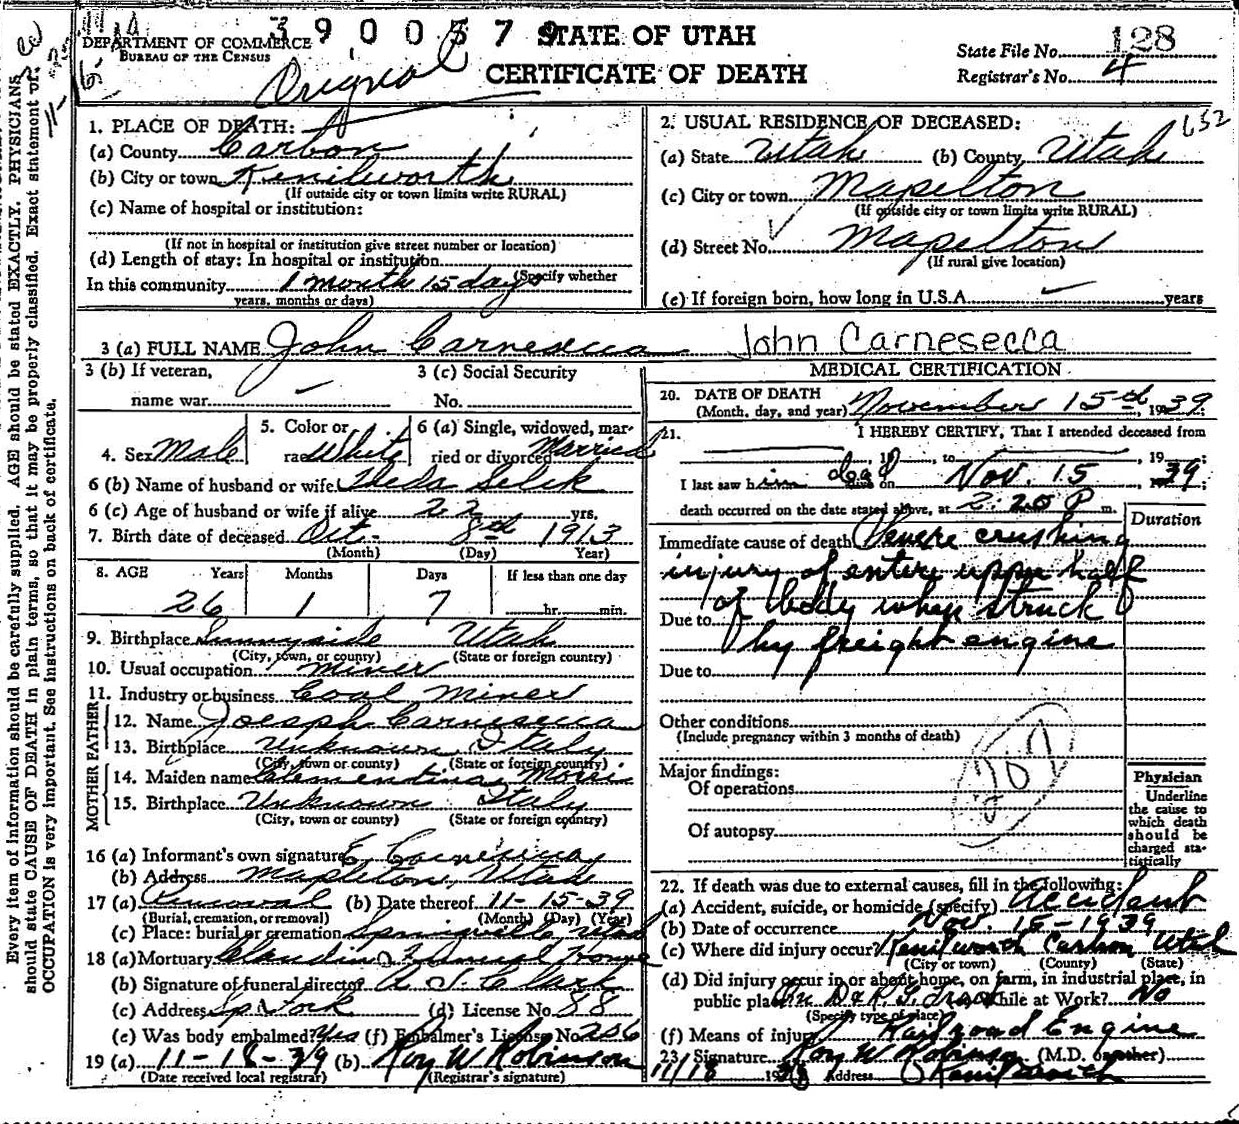 3900579
DEPARTMENT OF COMMERCE
BUREAU OF THE CENSUS
Original
STATE OF UTAH
CERTIFICATE OF DEATH
State File No. 128
Registrar's No. 4
Every item of information should be carefully supplied. AGE should be stated EXACTLY. PHYSICIANS
should state CAUSE OF DEATH in plain terms, so that it may be properly classified. Exact statement of
OCCUPATION is very important. See instructions on back of certificate.
1. PLACE OF DEATH:
(a) County Carbon
(b) City or town Kenilworth
(If outside city or town limits write RURAL)
(c) Name of hospital or institution:
(If not in hospital or institution give street number or location)
(d) Length of stay: In hospital or institution
(Specify whether
In this community 1 month 15 days
years, months or days)
2. USUAL RESIDENCE OF DECEASED: 652
(a) State Utah (b) County Utah
(c) City or town Mapelton
(If outside city or town limits write RURAL)
(d) Street No. Mapelton
(If rural give location)
(e) If foreign born, how long in U.S.A. years
3 (a) FULL NAME John Carnesecca John Carnesecca
3 (b) If veteran,
name war
3 (c) Social Security
No.
4. Sex Male
5. Color or
race White
6 (a) Single, widowed, mar-
ried or divorced Married
6 (b) Name of husband or wife Selck
6 (c) Age of husband or wife if alive 22 yrs.
7. Birth date of deceased Oct. 8th 1913
(Month) (Day) (Year)
8. AGE Years Months Days If less than one day
26 1 7 hr. min.
9. Birthplace Sunnyside Utah
(City, town, or county) (State or foreign country)
10. Usual occupation Miner
11. Industry or business Coal Miner
FATHER
12. Name Joesph Carnesecca
13. Birthplace Unknown Italy
(City, town or county) (State or foreign country)
MOTHER
14. Maiden name Clementina Morris
15. Birthplace Unknown Italy
(City, town or county) (State or foreign country)
16 (a) Informant's own signature E. Carnesecca
(b) Address Mapleton, Utah
17 (a) Removal (b) Date thereof 11-15-39
(Burial, cremation, or removal) (Month) (Day) (Year)
(c) Place: burial or cremation Springville Utah
18 (a) Mortuary Claudin Funeral Home
(b) Signature of funeral director A. J. Clark
(c) Address Sp. Fork (d) License No. 88
(e) Was body embalmed? Yes (f) Embalmer's License No. 206
19 (a) 11-18-39 (b) Roy W Robinson
(Date received local registrar) (Registrar's signature)
MEDICAL CERTIFICATION
20. DATE OF DEATH
(Month, day, and year) November 15th, 1939
21. I HEREBY CERTIFY, That I attended deceased from
, 19 , to , 19 ;
I last saw him dead on Nov. 15 1939;
death occurred on the date stated above, at 2:20 P m.
Duration
Immediate cause of death Severe crushing
injury of entire upper half
Due to of body when struck
by freight engine
Due to
Other conditions
(Include pregnancy within 3 months of death)
Major findings:
Of operations
Of autopsy
Physician
Underline
the cause to
which death
should be
charged sta-
tistically
22. If death was due to external causes, fill in the following:
(a) Accident, suicide, or homicide (specify) Accident
(b) Date of occurrence Nov. 15-1939
(c) Where did injury occur? Kenilworth Carbon Utah
(City or town) (County) (State)
(d) Did injury occur in or about home, on farm, in industrial place, in
public place? On D & R G. track While at Work? No
(Specify type of place)
(f) Means of injury Railroad Engine
23. Signature Roy W Robinson (M.D. or other)
11/18 Address Kenilworth